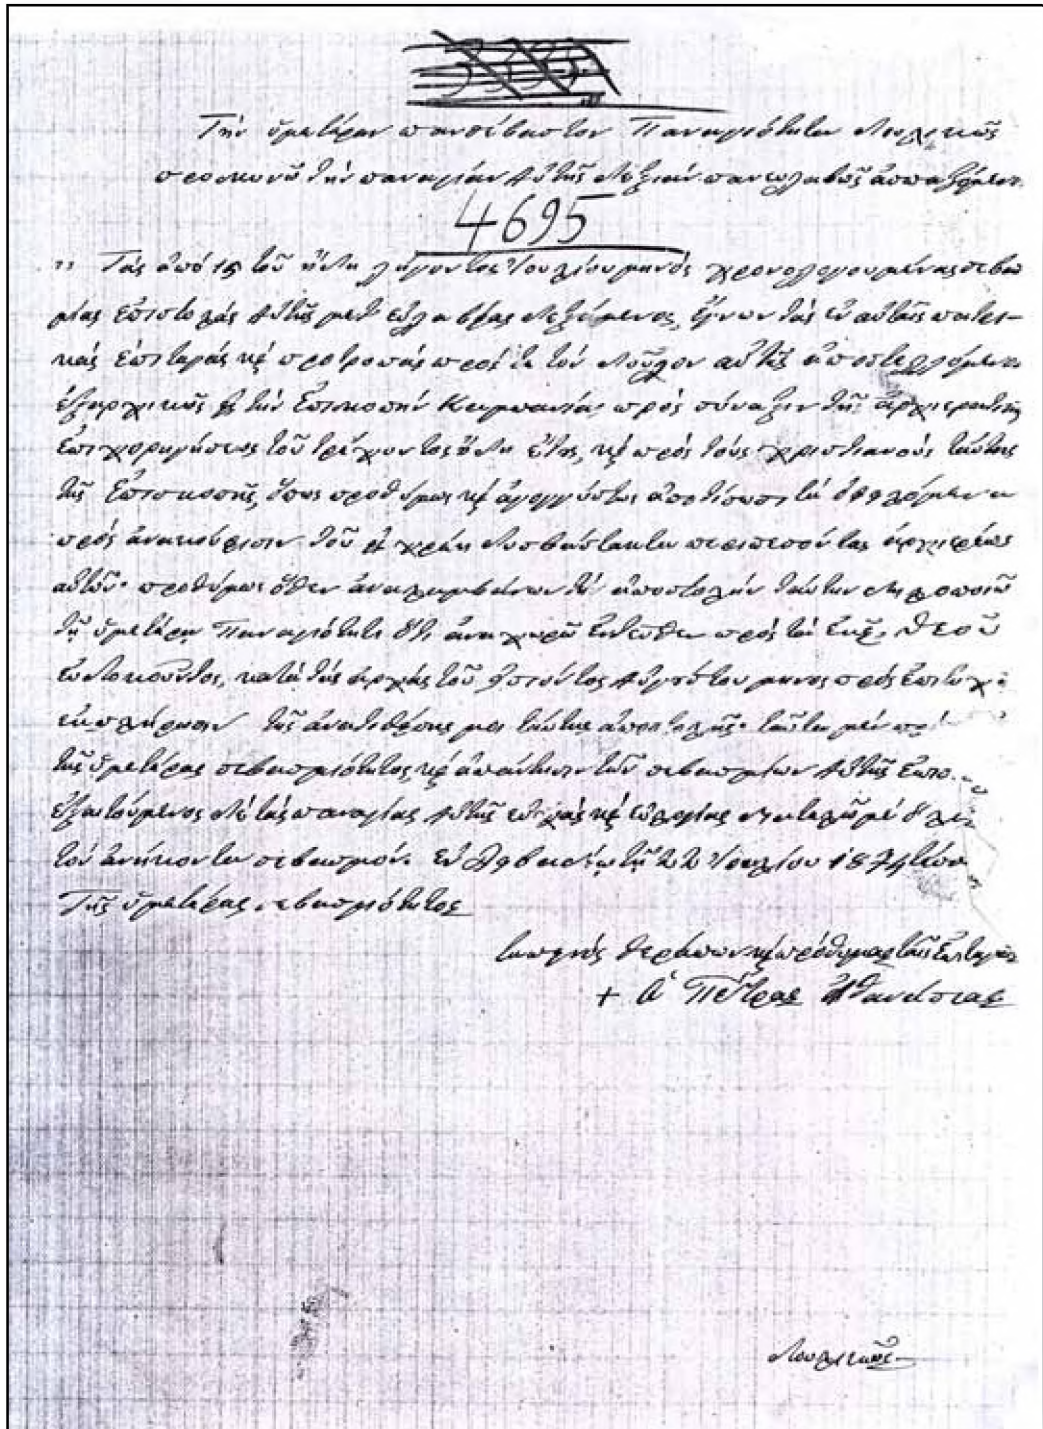 Τὴν ὑμετέραν πανσέβαστον Παναγιότητα δουλικῶς
προσκυνῶ τὴν παναγίαν Αὐτῆς δεξιὰν πανευλαβῶς ἀσπαζόμενος.
4695
Τὰς ἀπὸ 15 τοῦ ἤδη λήγοντος Ἰουλίου μηνὸς χρονολογουμένας σεβα
σμίας ἐπιστολάς Αὐτῆς μετ' εὐλαβείας δεξάμενος, ἔγνων τὰς ἐν αὐταῖς πατρι-
κάς ἐπιταγάς κ̀ προτροπάς πρός τε τὸν δοῦλον αὐτῆς ἀποστελλόμενον
ἐξαρχικῶς εἰς τὴν Ἐπισκοπὴν Καμπανίας πρὸς σύναξιν τῆς ἀρχιερατικῆς
ἐπιχορηγήσεως τοῦ τρέχοντος ἤδη ἔτους, κ̀ πρὸς τοὺς χριστιανοὺς ταύτης
τῆς Ἐπισκοπῆς, ὅπως προθύμως κ̀ ἀγογγύστως ἀποτίσωσι τὰ ὀφειλόμενα
πρὸς ἀνακούφισιν τοῦ εἰς χρέη δυσβάστακτα περιπεσόντος ἀρχιερέως
αὐτῶν· προθύμως ὅθεν ἀναλαμβάνων τὴν ἀποστολὴν ταύτην δηλοποιῶ
τῇ ὑμετέρᾳ Παναγιότητι ὅτι ἀναχωρῶ ἐντεῦθεν πρὸς τὰ ἐκεῖ, Θεοῦ
εὐδοκοῦντος, κατὰ τὰς ἀρχὰς τοῦ ἐπιόντος Αὐγούστου μηνὸς πρὸς
ἐκπλήρωσιν τῆς ἀνατεθείσης μοι ταύτης ἀποστολῆς· ταῦτα μὲν
τῆς ὑμετέρας σεβασμιότητος κ̀ ἀπάντησιν τῶν σεβασμίων Αὐτῆς
ἐξαιτούμενος δὲ τὰς παναγίας Αὐτῆς εὐχὰς κ̀ εὐλογίας διατελῶ μεθ' ὅλου
τὸν ἀνήκοντα σεβασμόν. Ἐν τῇ 22 Ἰουλίου 1874
Τῆς ὑμετέρας σεβασμιότητος
ταπεινὸς θεράπων κ̀ πρόθυμος εἰς τὰς ἐπιταγὰς
+ Ὁ Πέτρας Ἀθανάσιος
δουλικῶς